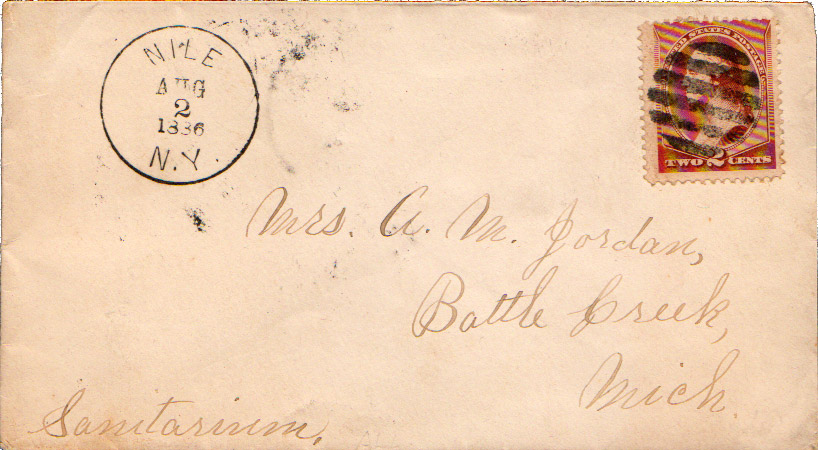 NILE
AUG
2
1886
N.Y.
UNITED STATES POSTAGE
TWO 2 CENTS
Mrs. A. M. Jordan,
Battle Creek,
Mich.
Sanitarium,